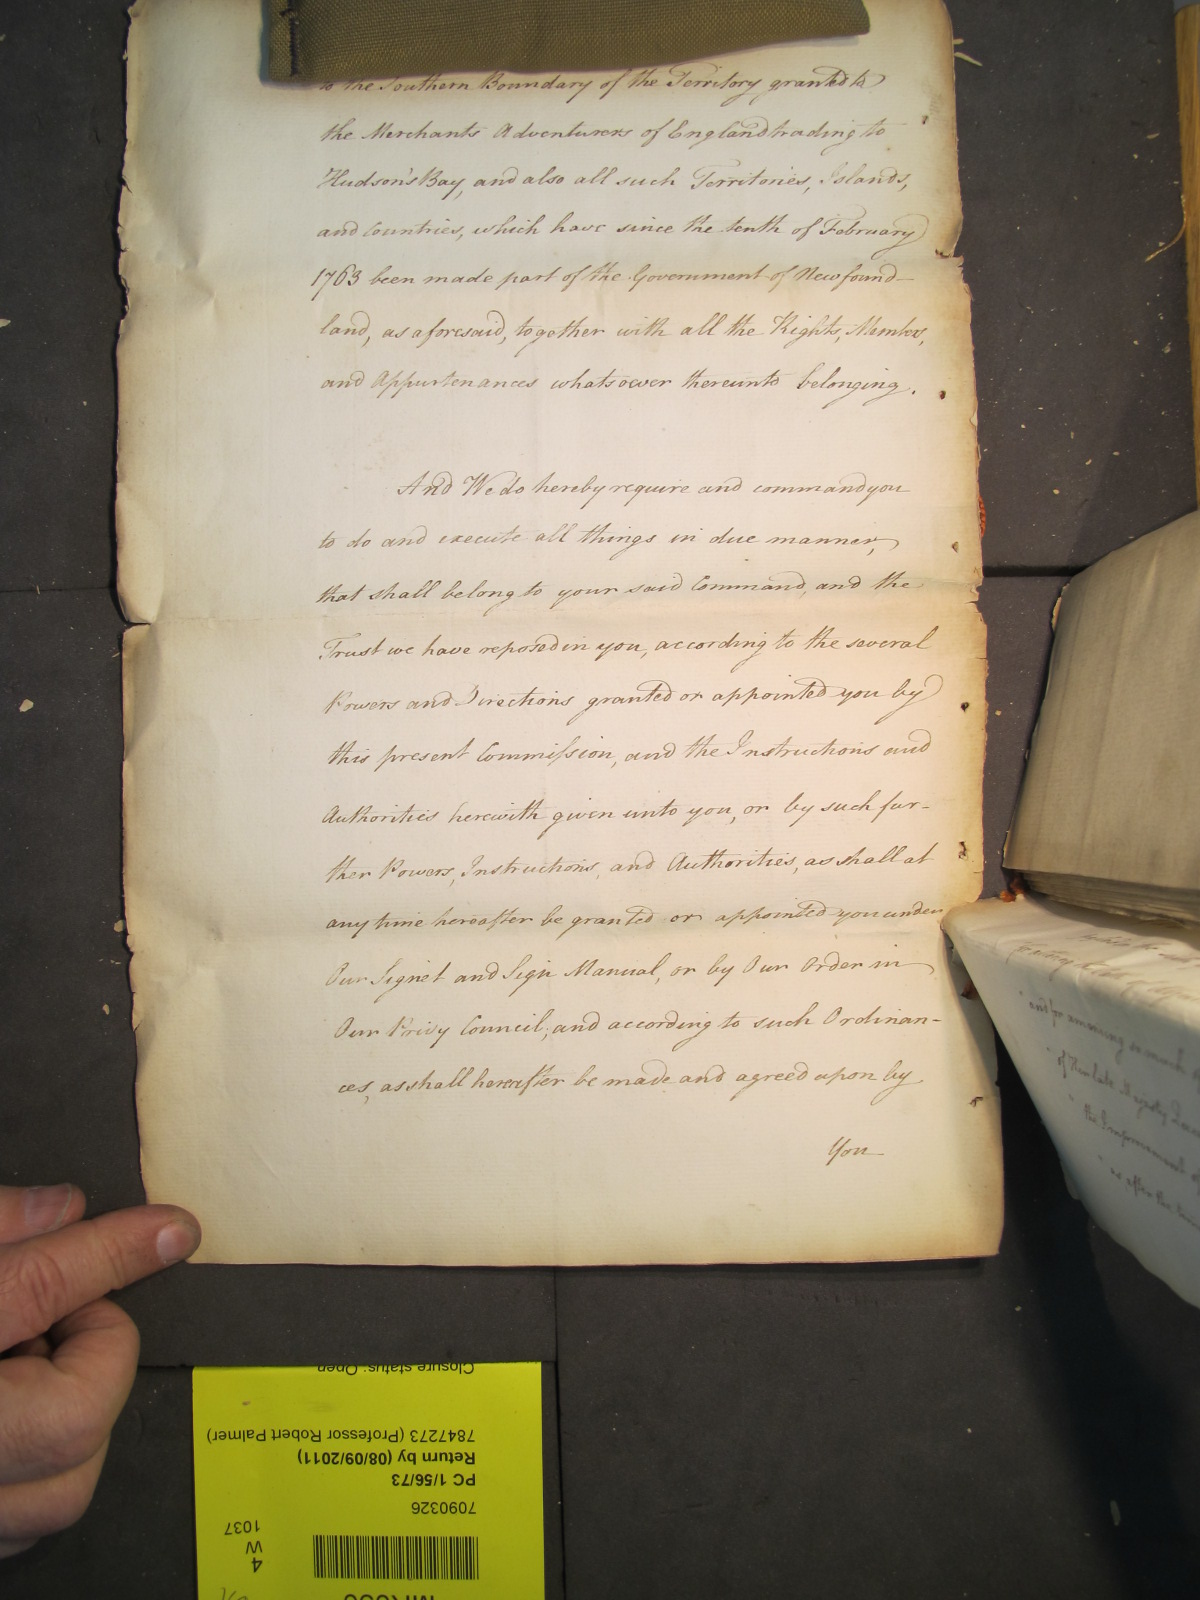 to the Southern Boundary of the Territory granted to
the Merchants Adventurers of England trading to
Hudson's Bay, and also all such Territories, Islands,
and Countries, which have since the tenth of February
1763 been made part of the Government of Newfound-
land, as aforesaid, together with all the Rights, Members,
and Appurtenances whatsoever thereunto belonging.
And We do hereby require and command you
to do and execute all things in due manner,
that shall belong to your said Command, and the
Trust we have reposed in you, according to the several
Powers and Directions granted or appointed you by
this present Commission, and the Instructions and
Authorities herewith given unto you, or by such fur-
ther Powers, Instructions, and Authorities, as shall at
any time hereafter be granted or appointed you under
Our Signet and Sign Manual, or by Our Order in
Our Privy Council, and according to such Ordinan-
ces, as shall hereafter be made and agreed upon by
You
Closure status: Open
7847273 (Professor Robert Palmer)
Return by (08/09/2011)
PC 1/56/73
7090326
4
W
1037